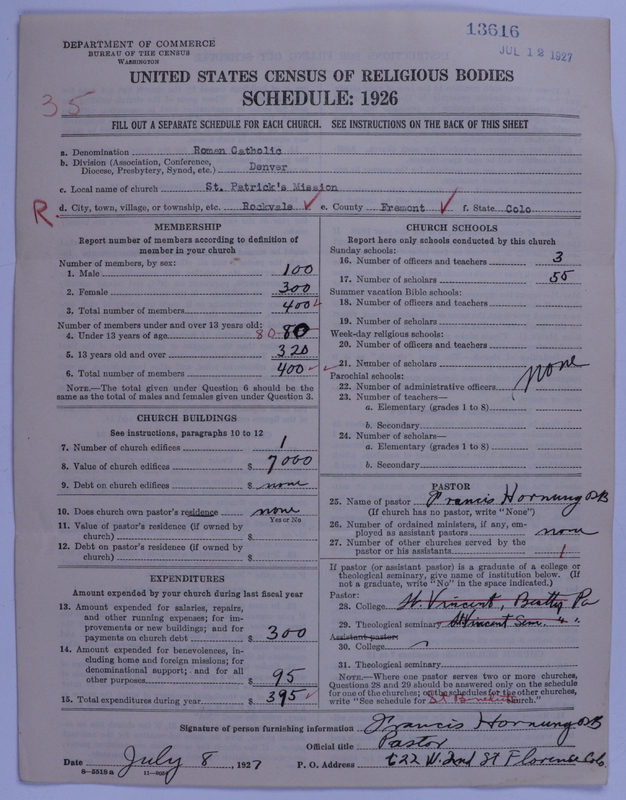 13616
JUL 12 1927
DEPARTMENT OF COMMERCE
BUREAU OF THE CENSUS
WASHINGTON
UNITED STATES CENSUS OF RELIGIOUS BODIES
SCHEDULE: 1926
35
FILL OUT A SEPARATE SCHEDULE FOR EACH CHURCH. SEE INSTRUCTIONS ON THE BACK OF THIS SHEET
a. Denomination Roman Catholic
b. Division (Association, Conference, Diocese, Presbytery, Synod, etc.) Denver
c. Local name of church St. Patrick's Mission
R d. City, town, village, or township, etc. Rockvale e. County Fremont f. State Colo
MEMBERSHIP
Report number of members according to definition of
member in your church
Number of members, by sex:
1. Male 100
2. Female 300
3. Total number of members 400
Number of members under and over 13 years old:
4. Under 13 years of age 80 80
5. 13 years old and over 320
6. Total number of members 400
NOTE.—The total given under Question 6 should be
same as the total of males and females given under Question 3.
CHURCH BUILDINGS
See instructions, paragraphs 10 to 12
7. Number of church edifices 1
8. Value of church edifices $ 7000
9. Debt on church edifices $ none
10. Does church own pastor's residence none
Yes or No
11. Value of pastor's residence (if owned by
church) $
12. Debt on pastor's residence (if owned by
church) $
EXPENDITURES
Amount expended by your church during last fiscal year
13. Amount expended for salaries, repairs,
and other running expenses; for im-
provements or new buildings; and for
payments on church debt $ 300
14. Amount expended for benevolences, in-
cluding home and foreign missions; for
denominational support; and for all
other purposes $ 95
15. Total expenditures during year $ 395
CHURCH SCHOOLS
Report here only schools conducted by this church
Sunday schools:
16. Number of officers and teachers 3
17. Number of scholars 55
Summer vacation Bible schools:
18. Number of officers and teachers
19. Number of scholars
Week-day religious schools:
20. Number of officers and teachers
21. Number of scholars
Parochial schools: none
22. Number of administrative officers
23. Number of teachers—
a. Elementary (grades 1 to 8)
b. Secondary
24. Number of scholars—
a. Elementary (grades 1 to 8)
b. Secondary
PASTOR
25. Name of pastor Francis Hornung OSB
(If church has no pastor, write "None")
26. Number of ordained ministers, if any, em-
ployed as assistant pastors none
27. Number of other churches served by the
pastor or his assistants 1
If pastor (or assistant pastor) is a graduate of a college or
theological seminary, give name of institution below. (If
not a graduate, write "No" in the space indicated.)
Pastor:
28. College St. Vincent, Beatty Pa
29. Theological seminary St Vincent Sem. " "
Assistant pastor:
30. College
31. Theological seminary
NOTE.—Where one pastor serves two or more churches,
Questions 28 and 29 should be answered only on the schedule
for one of the churches; on the schedules for the other churches,
write "See schedule for St Benedict church."
Signature of person furnishing information Francis Hornung OSB
Official title Pastor
Date July 8, 1927 P. O. Address 622 W. 2nd St Florence Colo.
8-5518a